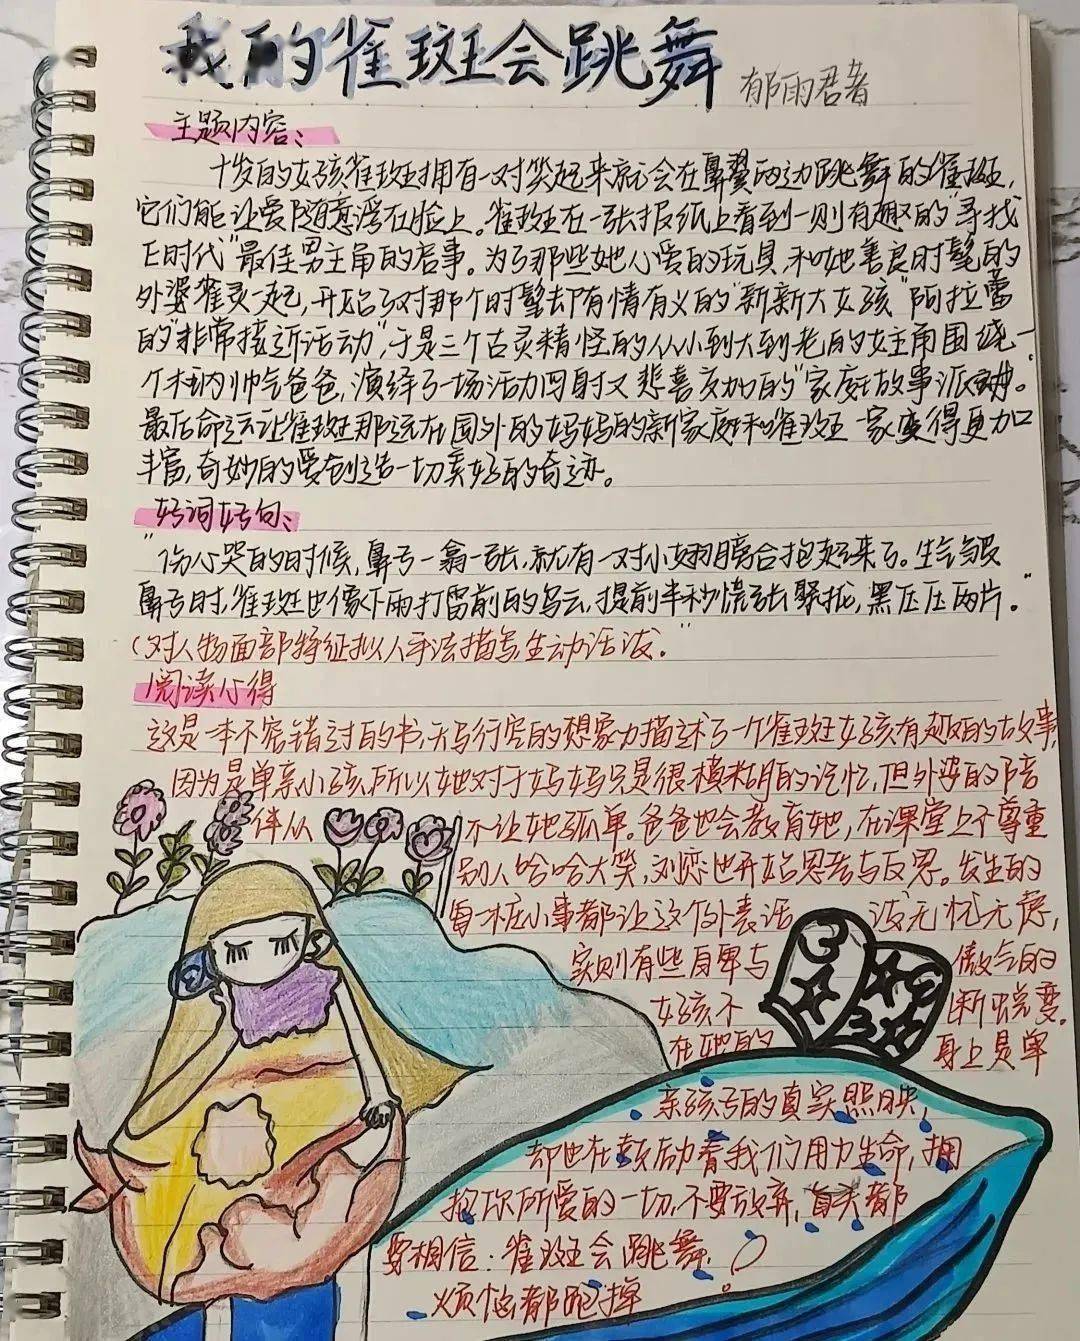 我的雀斑会跳舞
郁雨君著
主题内容：
十岁的女孩雀斑拥有一对笑起来就会在鼻翼两边跳舞的雀斑，
它们能让爱随意浮在脸上。雀斑在一张报纸上看到一则有趣的"寻找
E时代"最佳男主角的启事。为了那些她心爱的玩具，和她善良时髦的
外婆雀灵一起，开始了对那个时髦却有情有义的"新新大女孩"阿拉蕾
的"非常接近活动"，于是三个古灵精怪的从小到大到老的女主角围绕一
个木讷帅气爸爸，演绎了一场活力四射又悲喜交加的"家庭故事派
最后命运让雀斑那远在国外的妈妈的新家庭和雀斑一家变得更加
丰富，奇妙的爱创造一切美好的奇迹。
好词好句：
"伤心哭的时候，鼻子一翕一张，就有一对小翅膀合抱起来了。生气皱
鼻子时，雀斑也像下雨打雷前的乌云，提前半秒慌张聚拢，黑压压两片。"
（对人物面部特征拟人手法描写，生动活泼。"
阅读心得
这是一本不容错过的书，天马行空的想象力描述了一个雀斑女孩有趣的故事，
因为是单亲小孩，所以她对于妈妈只是很模糊的记忆，但外婆的陪
伴从 不让她孤单。爸爸也会教育她，在课堂上不尊重
别人哈哈大笑，刘恋也开始思考与反思。发生的
每一桩小事都让这个外表活 泼无忧无虑，
实则有些自卑与 傲气的
女孩不 断蜕变。
在她的 身上是单
亲孩子的真实照映，
却也在鼓励着我们用力生命，拥
抱你所爱的一切，不要放弃，首先都
要相信：雀斑会跳舞，
烦恼都跑掉